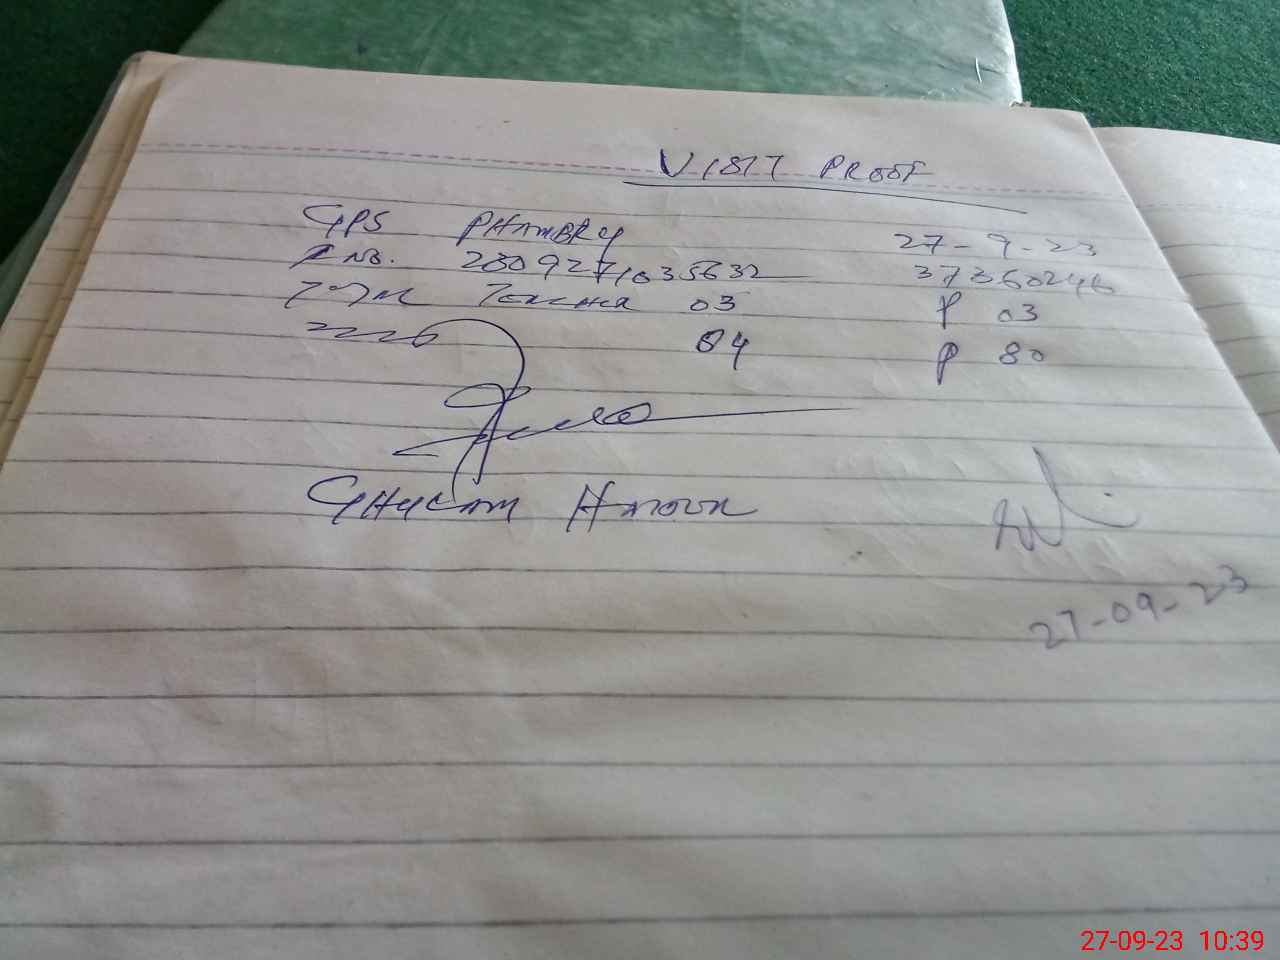 VISIT PROOF
GPS PHAMBRY 27-9-23
P No. 2309271035632 37360246
Total Teacher 03 P 03
04 P 80
GHULAM HAROON
27-09-23
27-09-23 10:39